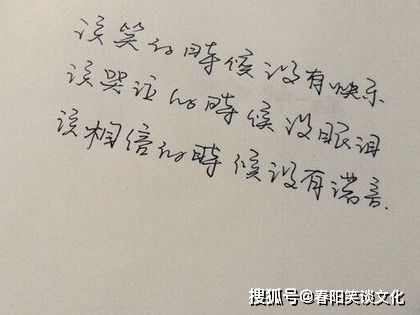 该笑的时候没有快乐
该哭泣的时候没眼泪
该相信的时候没有诺言.
搜狐号@春阳笑谈文化